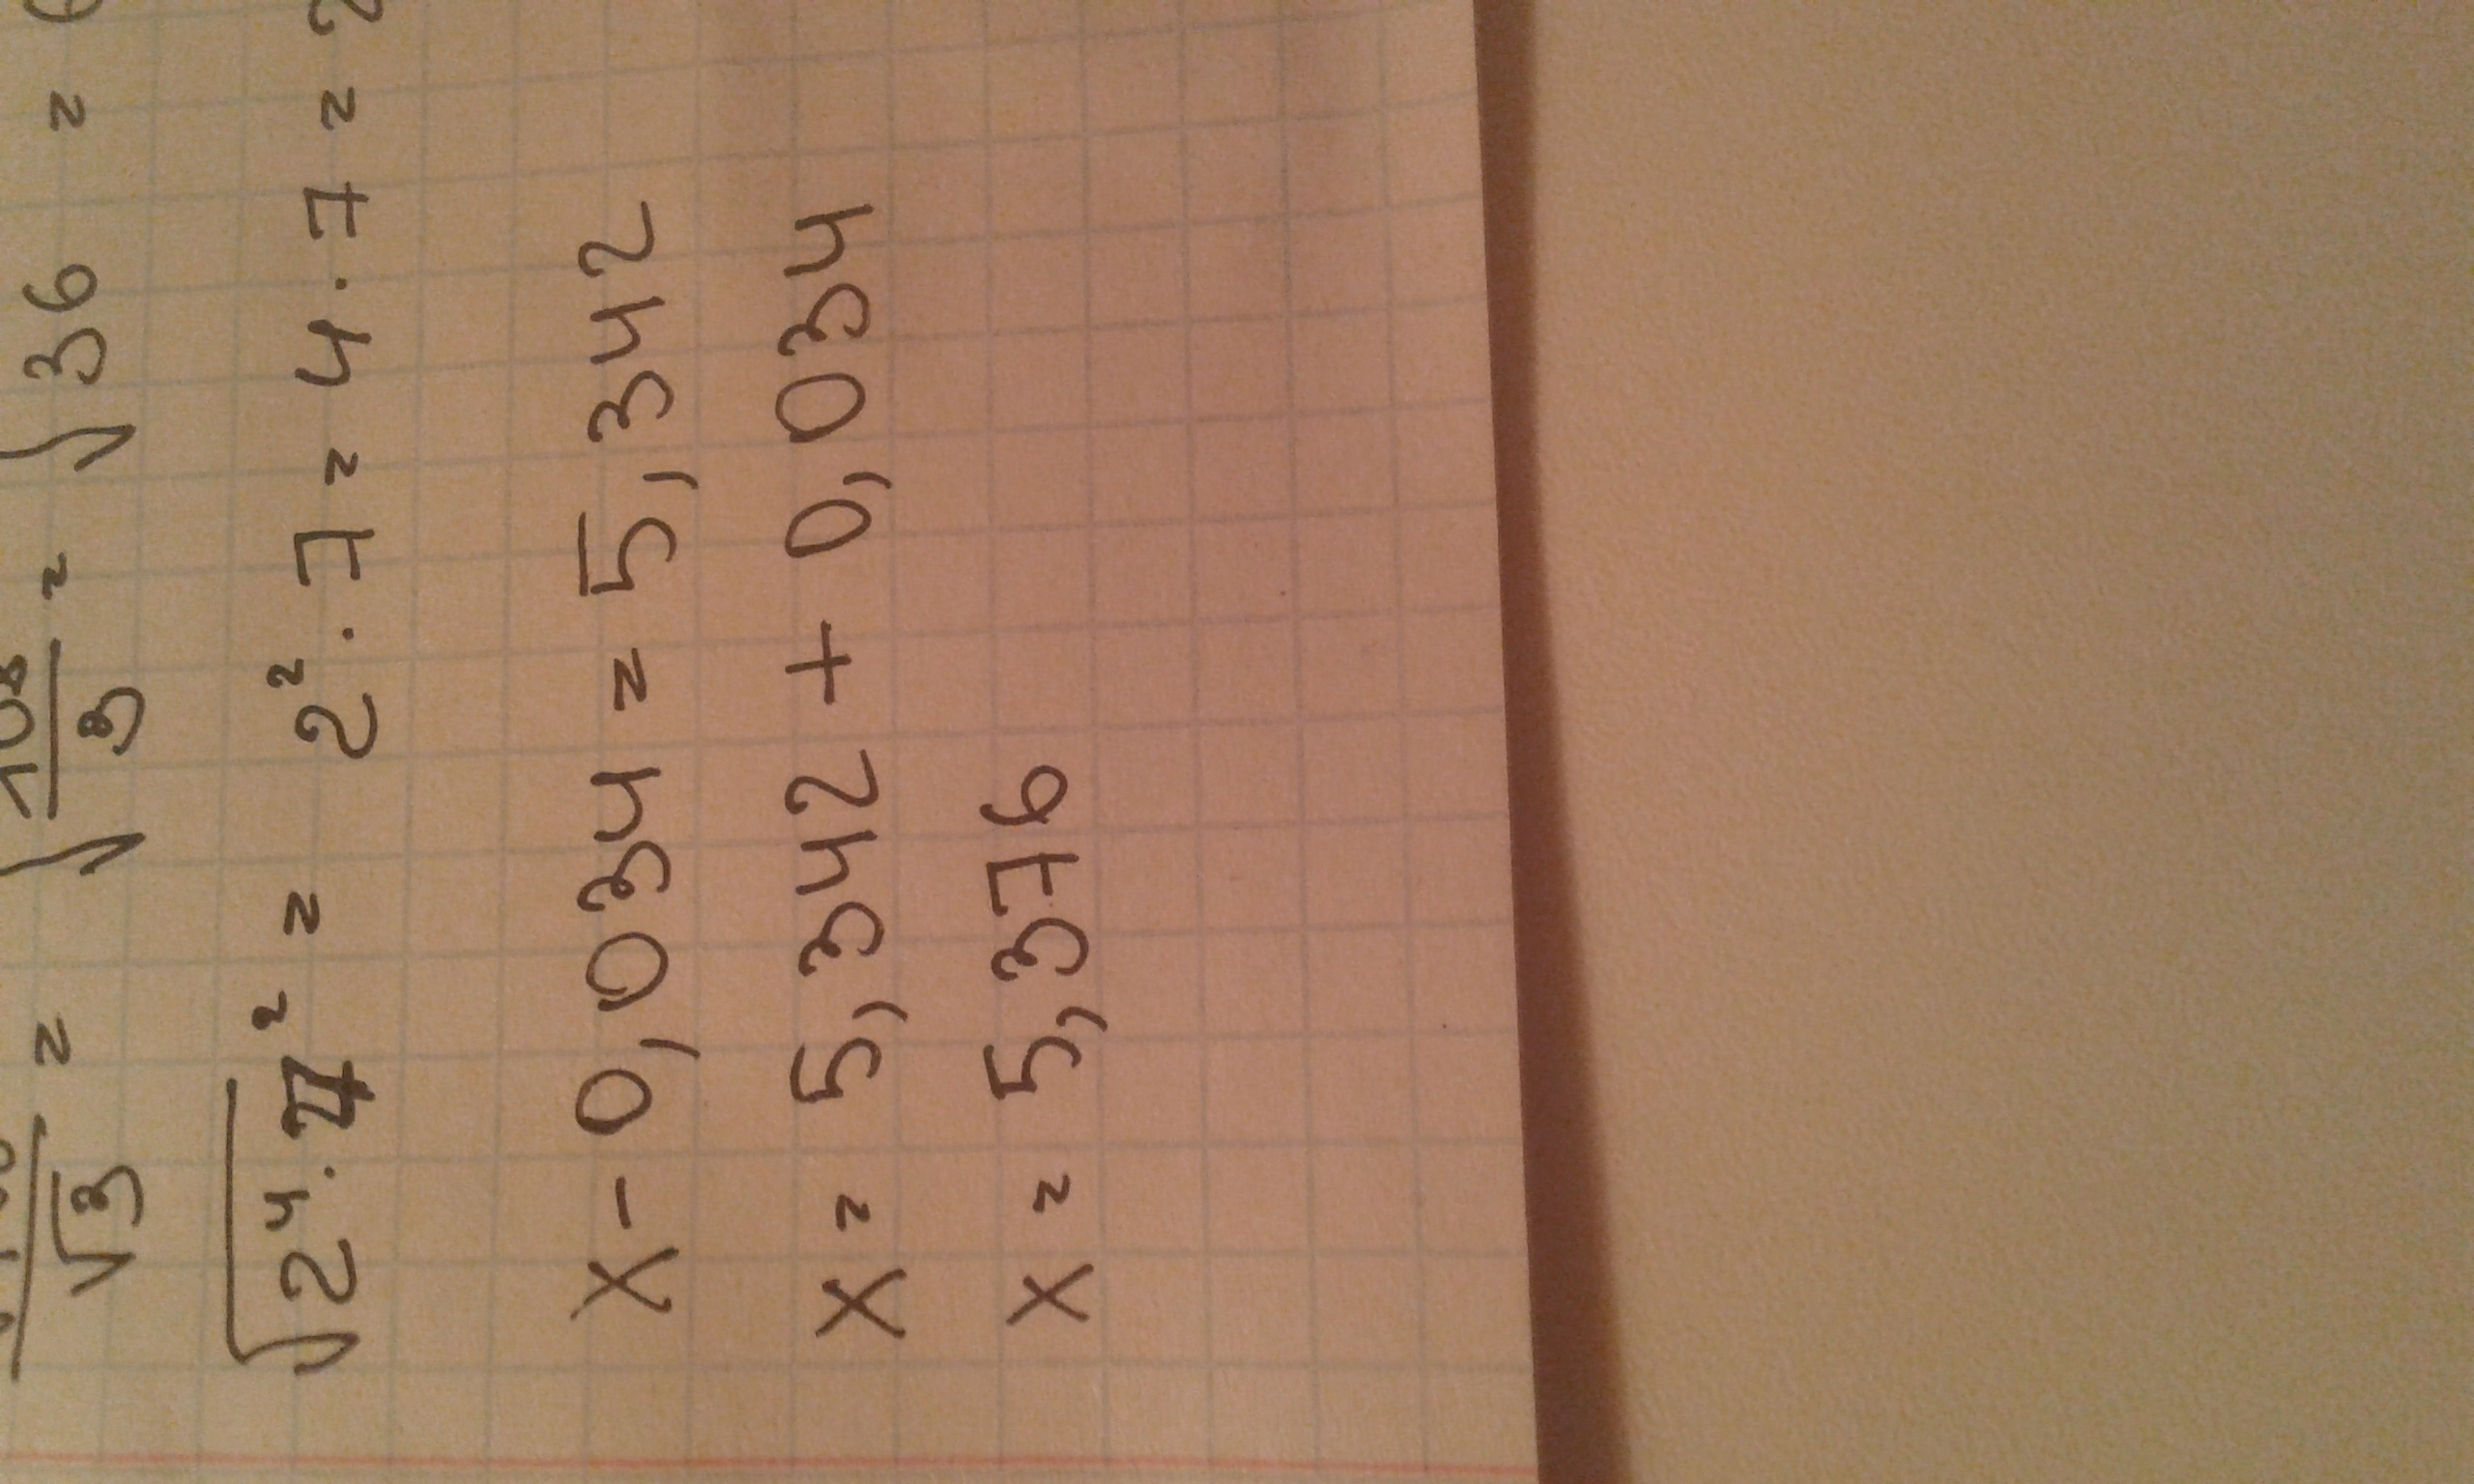 √3 = √108/3 = √36 =
√2⁴·7² = 2²·7 = 4·7 = 2
x - 0,034 = 5,342
x = 5,342 + 0,034
x = 5,376